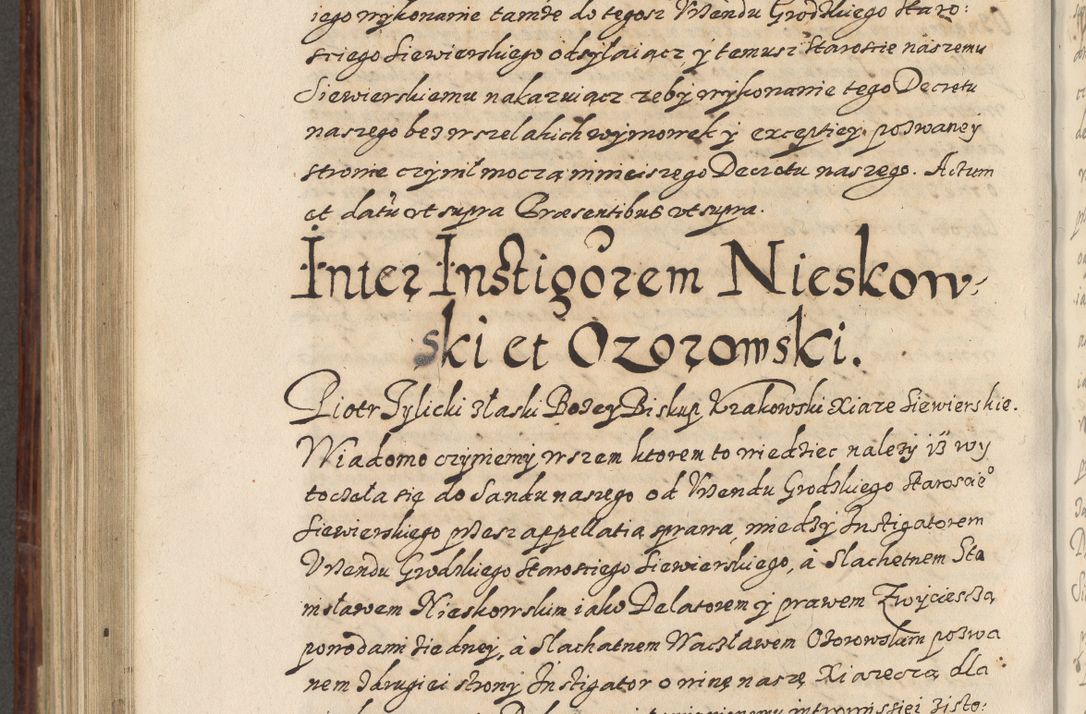 iego wykonanie tamże do tegosz Vrzendu Grodzkiego Staro:
sciego Siewierskiego odsyłaiącz, y temusz Staroscie naszemu
Siewierskiemu nakazuiącz zeby wykonanie tego Decretu
naszego bez wszelakich wymowek y exceptiey pozwaney
stronie czynił moczą ninieiszego Decretu naszego. Actum
et datū vt supra Præsentibus vt supra.
Inter Instigorem Nieskow-
ski et Ozorowski.
Piotr Tylicki z łaski Bozey Biskup Krakowski Xiąze Siewierskie.
Wiadomo czyniemy wszem ktorem to wiedziec nalezy iz wy
toczeła się do Sandu naszego od Vrzendu Grodzkiego Staroscie°
Siewierskiego przesz appellatią sprawa, miedzy Instigatorem
Vrzendu Grodzkiego Starosciego Siewierskiego, à Slachetnem Sta
nisławem Nieskowskim iako Delatorem y prawem Zwyciescza
powodami z iedney, à Slachatnem Wacsławem Ozorowskim pozwa
nem z drugiei strony Instigator o winę naszę Xiązeczą dla